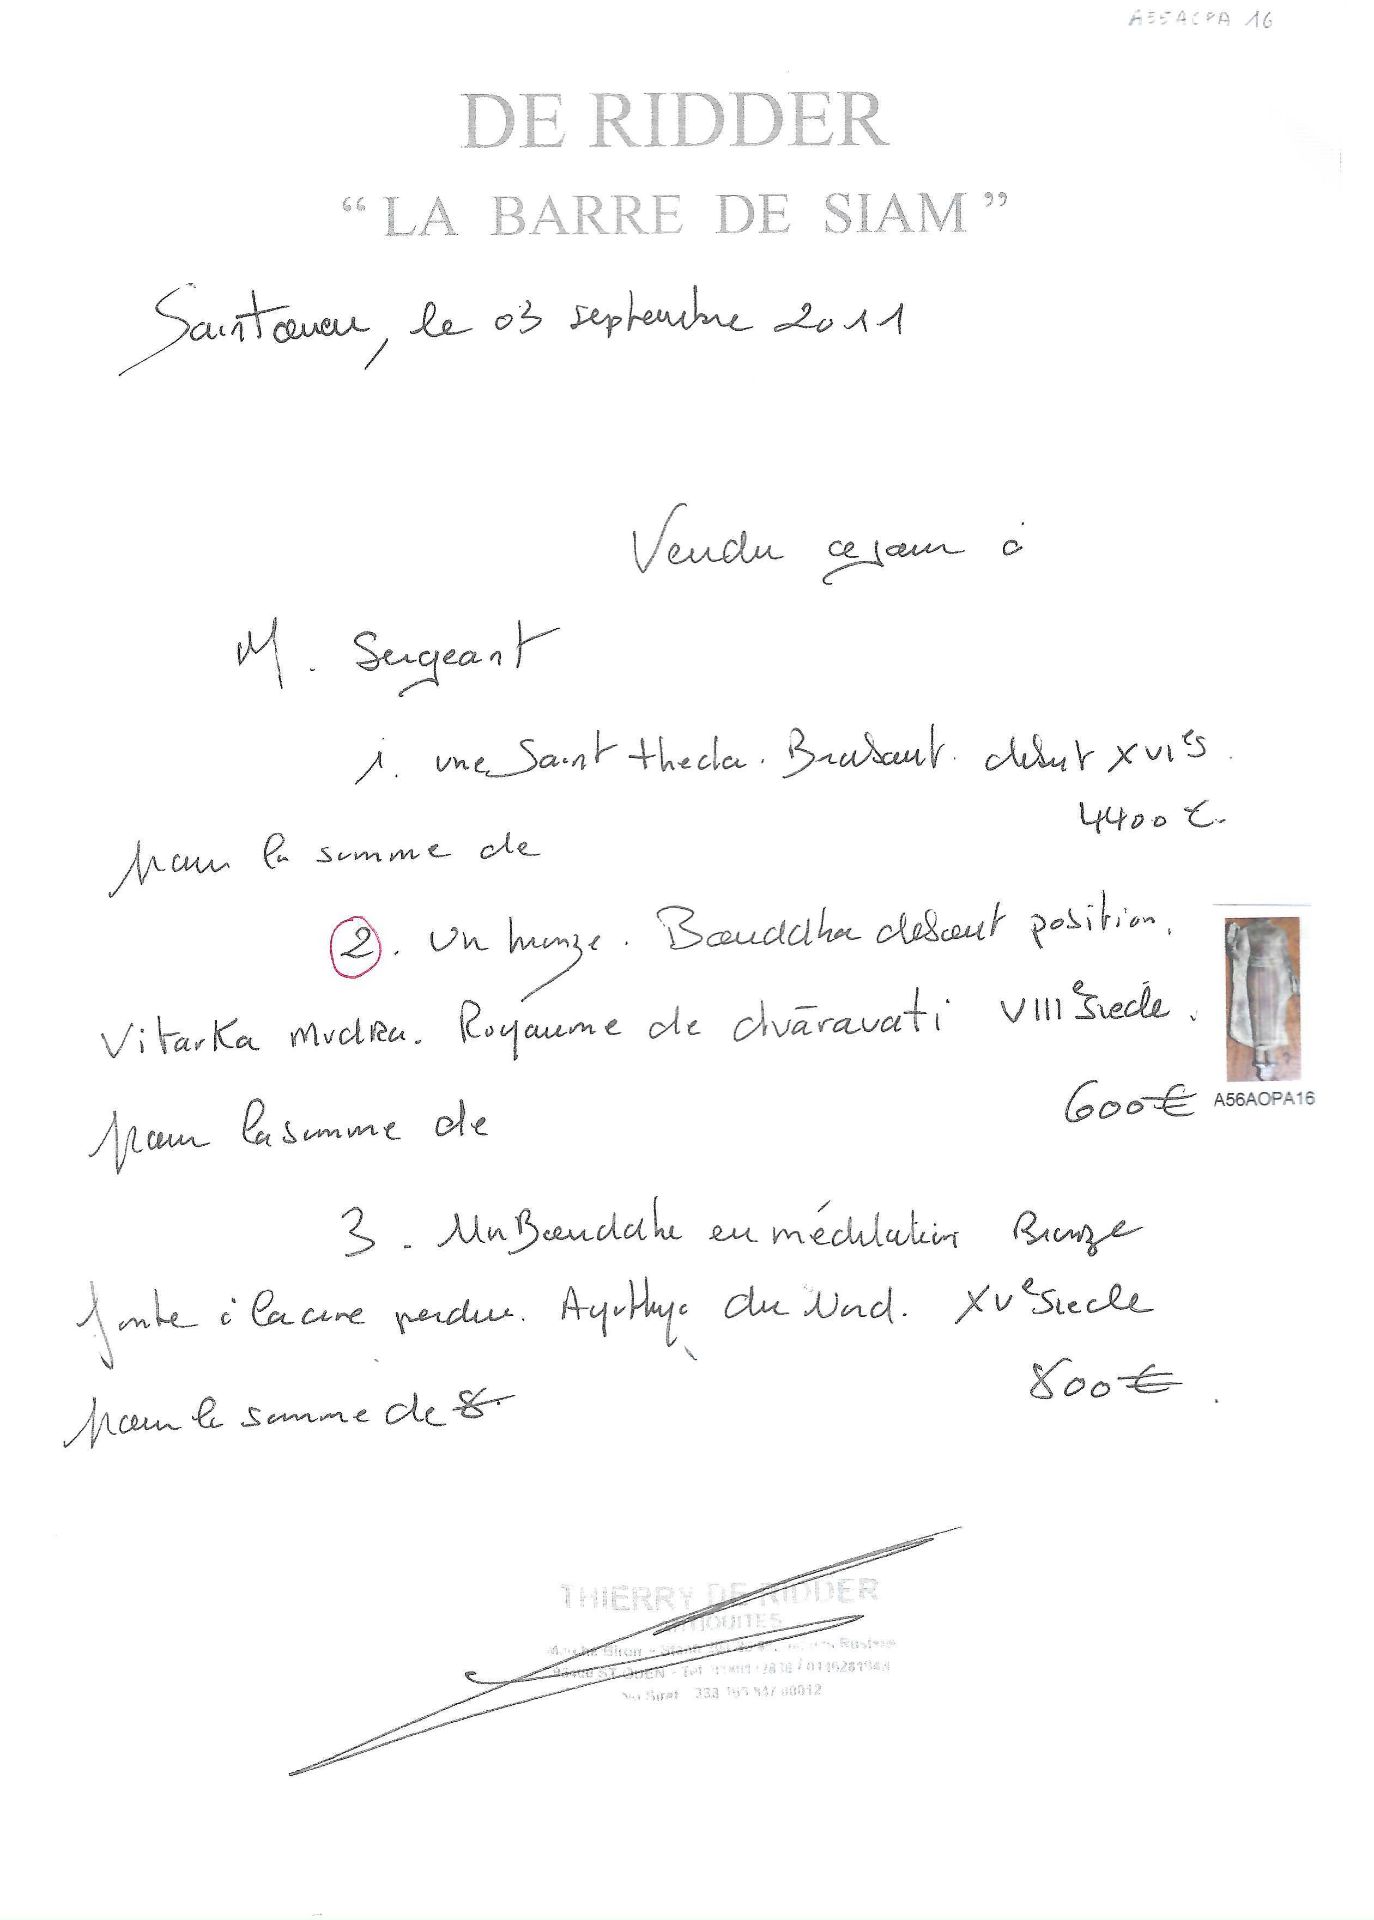 A55AOPA 16
DE RIDDER
“ LA BARRE DE SIAM ”
Saint ouen, le 03 septembre 2011
Vendu ce jour à
M. Sergeant
1. une Saint thecla. Brabant. début XVIes.
4400 €.
pour la somme de
2. Un bronze. Bouddha debout position.
Vitarka mudra. Royaume de dvāravati VIIIe Siecle.
600€ A56AOPA16
pour la somme de
3. Un Bouddha en méditation Bronze
fonte à la cire perdue. Ayuthya du Nord. XVe Siecle
800€.
pour la somme de 8
THIERRY DE RIDDER
ANTIQUITES
ST OUEN - Tel
Siret 333